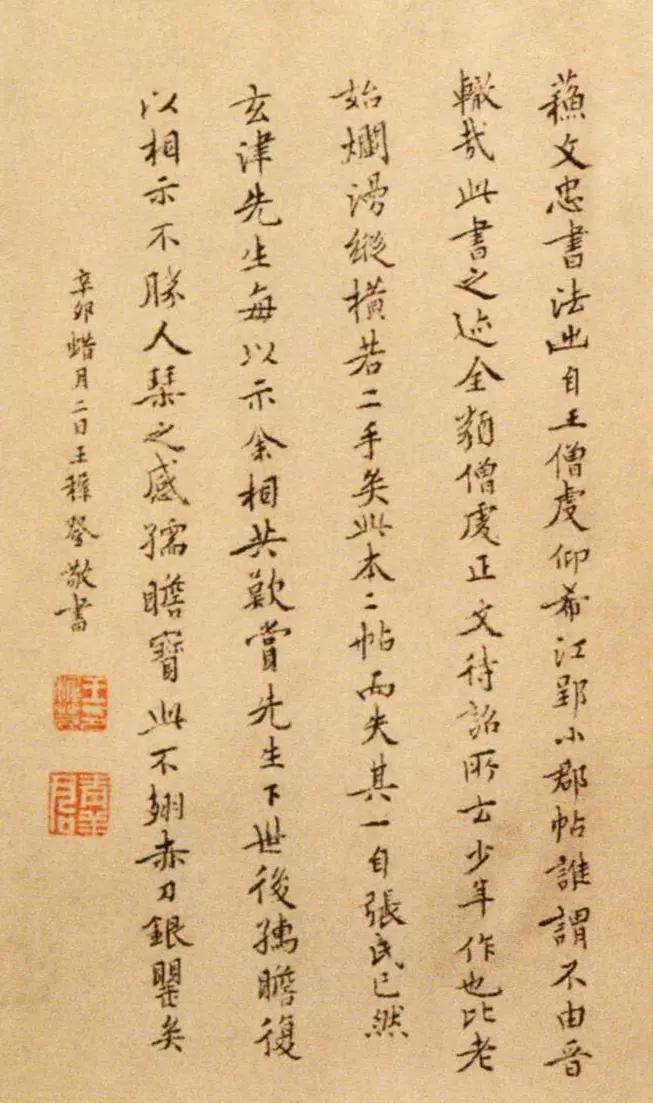 蘓文忠書法出自王僧虔仰希江郢小郡帖誰謂不由晉
轍哉此書之迹全類僧虔正文待詔所云少年作也比老
始爛漫縱橫若二手矣此本二帖而失其一自張氏已然
玄津先生每以示余相共歎賞先生下世後孺瞻復
以相示不勝人琹之感孺瞻寳此不翅赤刀銀罌矣
辛卯蜡月二日王穉登敬書